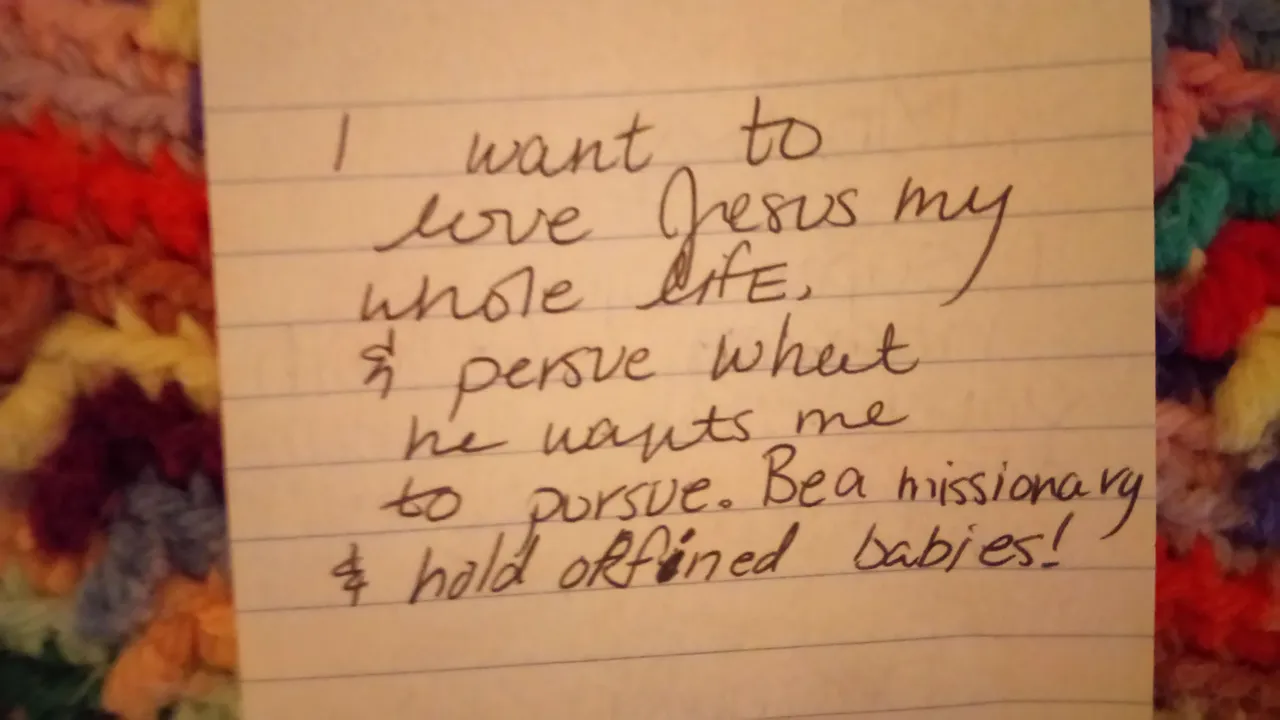 I want to
love Jesus my
whole lifE,
& persue what
he wants me
to pursue. Be a missionary
& hold orfined babies!